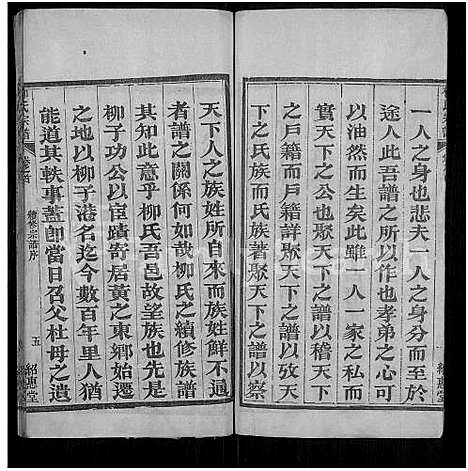 一人之身也悲夫一人之身分而至於
途人此吾譜之所以作也孝弟之心可
以油然而生矣此以一人一家之私而
實天下之族譜也聚天下之
之戶籍而戶籍具聚天下之譜以稽天下
之氏族而氏族著聚天下之譜以攷天
下人之譜以察
天下人之族姓所自來而族姓鮮不通
者譜之關係何如大哉柳氏之續修族譜
其知此意乎柳氏吾邑故望族也其先是
柳子功公以宦蹟寄居黃之東鄉始遷
之地以柳子港名迄今數百年里人猶
能道其軼事蓋卽當日召父杜母之遺
續修宗譜序
五
紹惠堂
紹惠堂